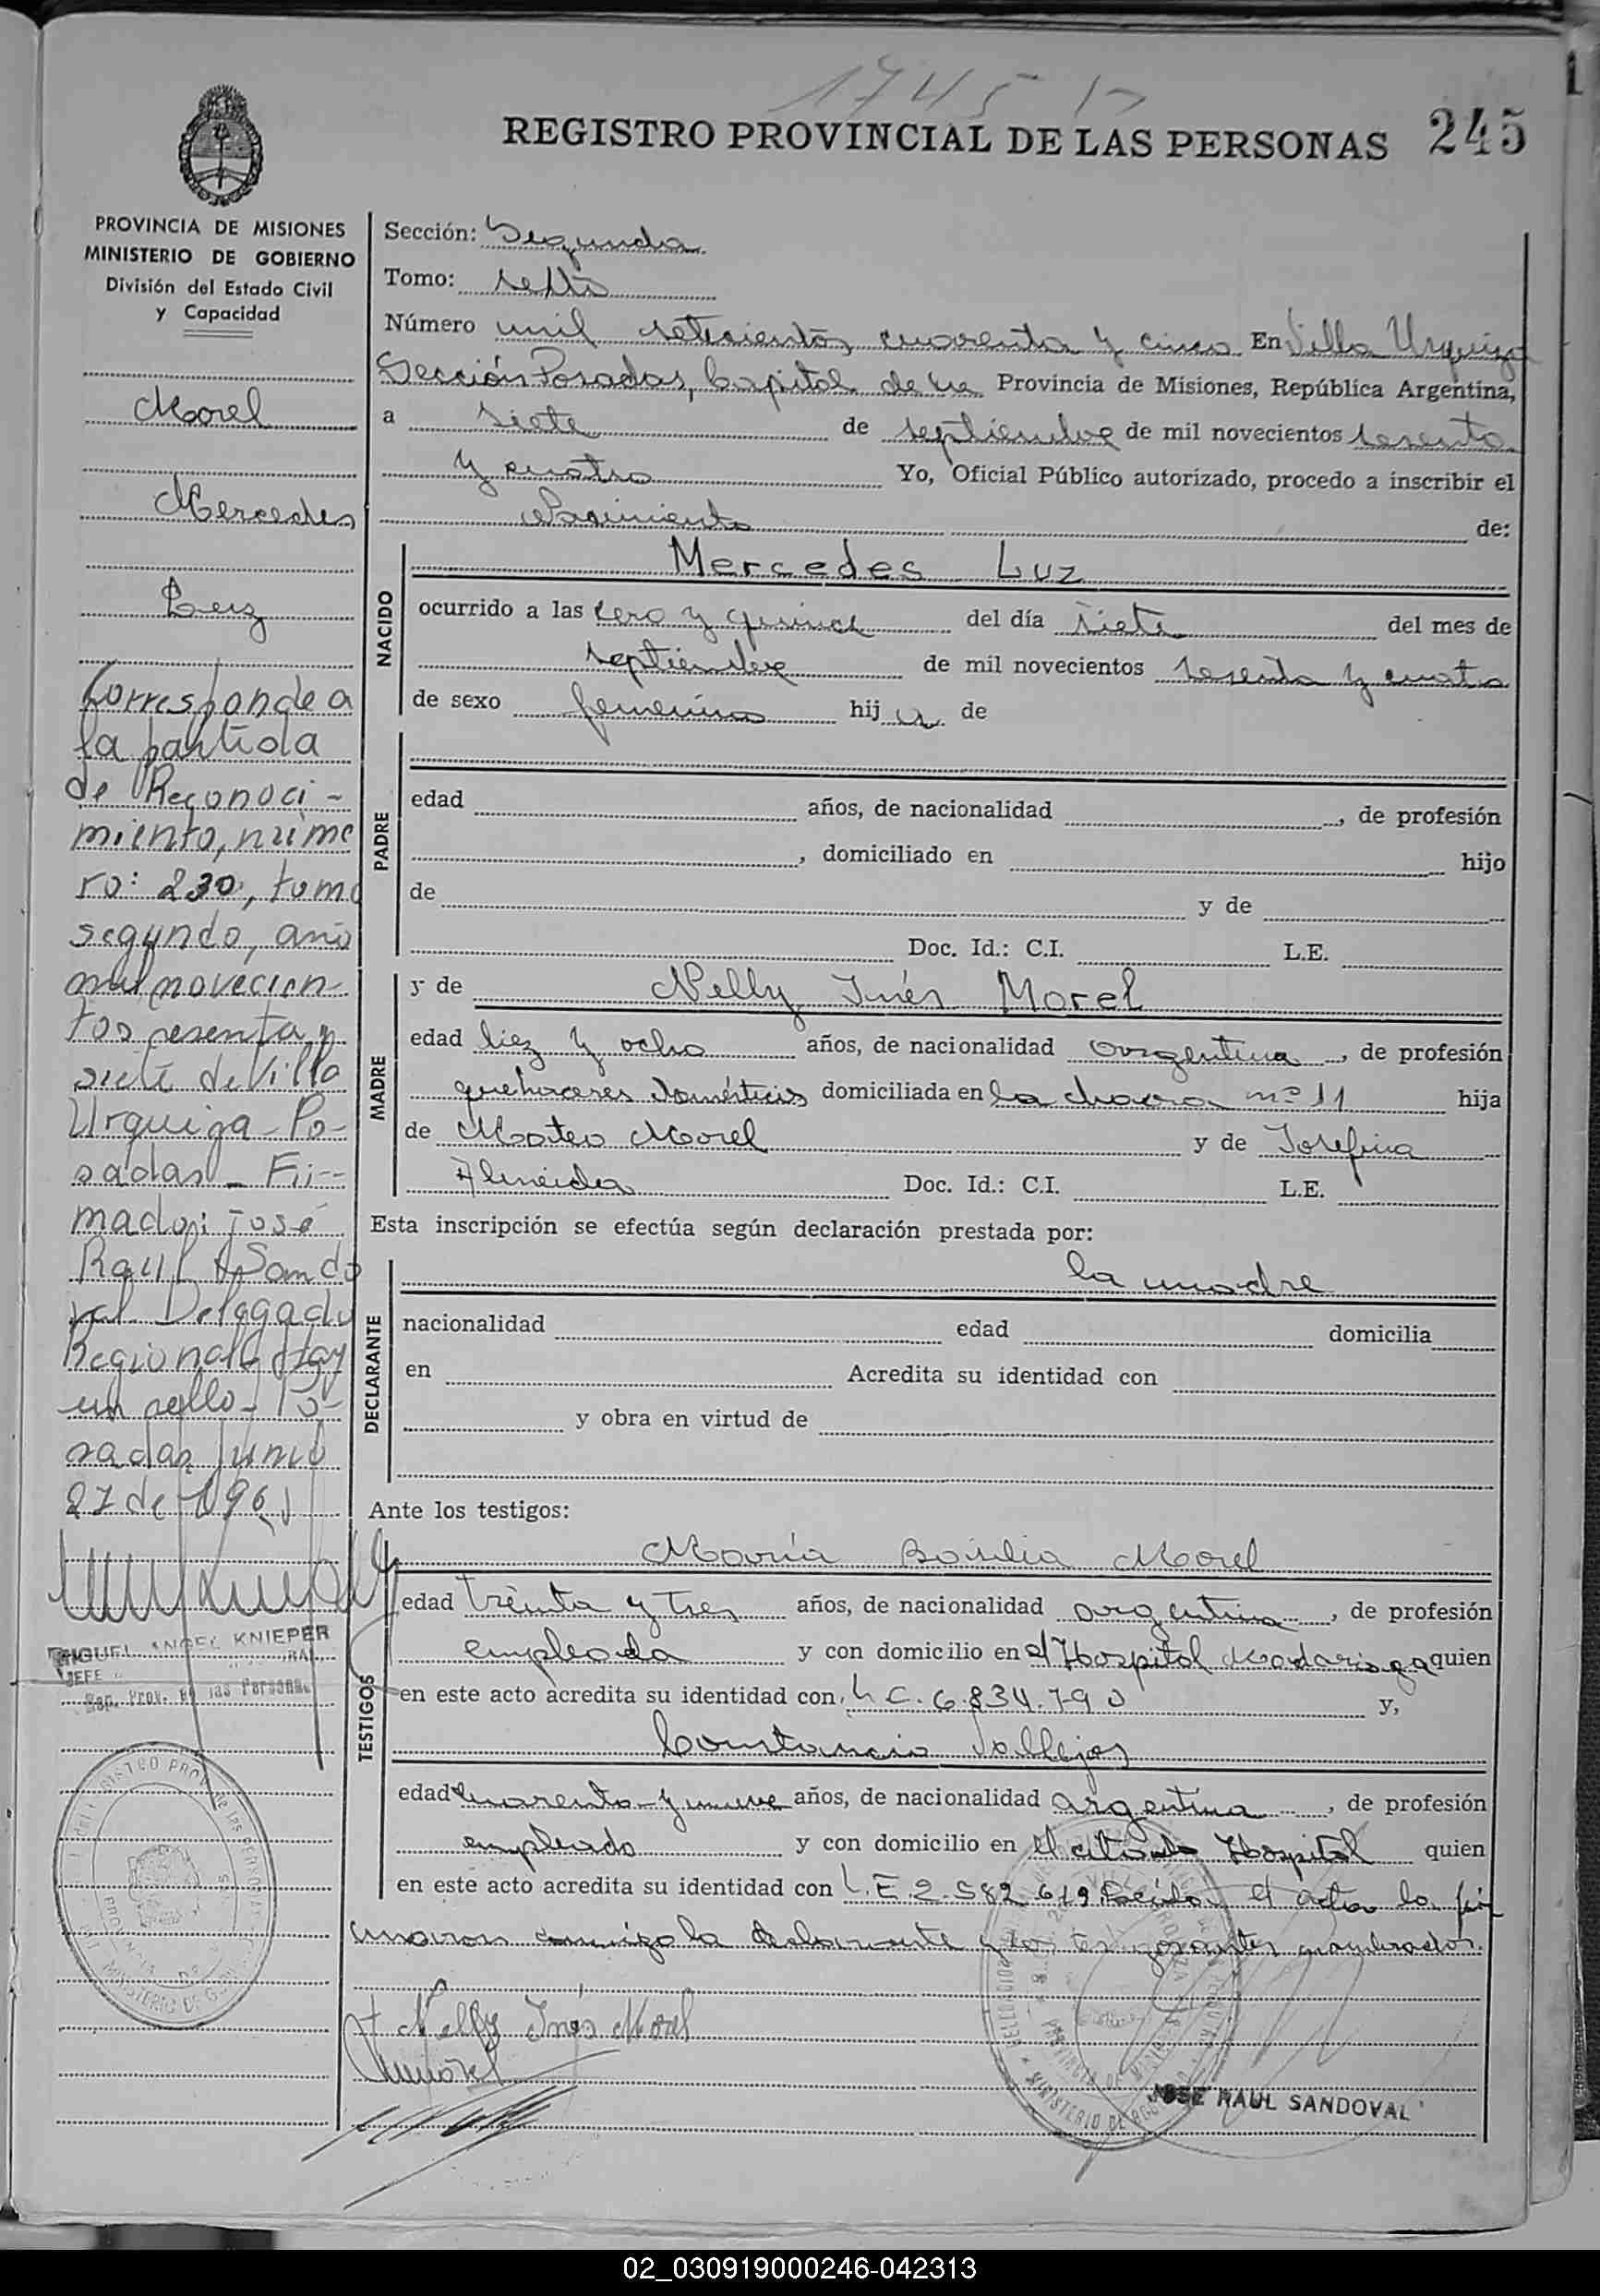 1745
REGISTRO PROVINCIAL DE LAS PERSONAS 245
PROVINCIA DE MISIONES
MINISTERIO DE GOBIERNO
División del Estado Civil
y Capacidad
Morel
Mercedes
Luz
Corresponde a
la partida
de Reconoci-
miento, núme
ro: 230, tomo
segundo, año
mil novecien-
tos sesenta y
siete de Villa
Urquiza - Po-
sadas - Fir-
mado: José
Raul Sando
val Delegado
Regional Hay
un sello - Po-
sadas Junio
27 de 196
MIGUEL ANGEL KNIEPER
JEFE
Reg. Prov. de las Personas
Sección: Segunda
Tomo: sexto
Número mil setecientos cuarenta y cinco En Villa Urquiza
Sección Posadas, Capital de la Provincia de Misiones, República Argentina,
a siete de septiembre de mil novecientos sesenta
y cuatro Yo, Oficial Público autorizado, procedo a inscribir el
Nacimiento de:
NACIDO
Mercedes Luz
ocurrido a las cero y quince del día siete del mes de
septiembre de mil novecientos sesenta y cuatro
de sexo femenino hij a de
PADRE
edad años, de nacionalidad , de profesión
, domiciliado en hijo
de y de
Doc. Id.: C.I. L.E.
MADRE
y de Nelly Inés Morel
edad diez y ocho años, de nacionalidad argentina, de profesión
quehaceres domésticos domiciliada en la chacra nº 11 hija
de Mateo Morel y de Josefina
Almeida Doc. Id.: C.I. L.E.
Esta inscripción se efectúa según declaración prestada por:
DECLARANTE
la madre
nacionalidad edad domicilia
en Acredita su identidad con
y obra en virtud de
Ante los testigos:
TESTIGOS
María Morel
edad treinta y tres años, de nacionalidad argentina, de profesión
empleada y con domicilio en el Hospital Madariaga quien
en este acto acredita su identidad con L.C. 6.834.790 y,
Constancio Vallejos
edad cuarenta y nueve años, de nacionalidad argentina, de profesión
empleado y con domicilio en el citado Hospital quien
en este acto acredita su identidad con L.E. 2.582.619 Leída el acta la fir
maron conmigo la declarante y los testigos antes nombrados.
Nelly Inés Morel
JOSE RAUL SANDOVAL
02_030919000246-042313